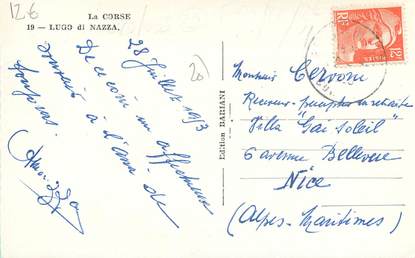 12€
La CORSE
19 — LUGO di NAZZA.
28 Juillet 1953
De ce coin un affectueux
souvenir à l'ami de
toujours.
20
Edition BARIANI
RF
POSTES
12F
Monsieur Cervoni
Receveur- en retraite
Villa "Gai soleil"
6 avenue Bellevue
Nice
(Alpes-Maritimes)